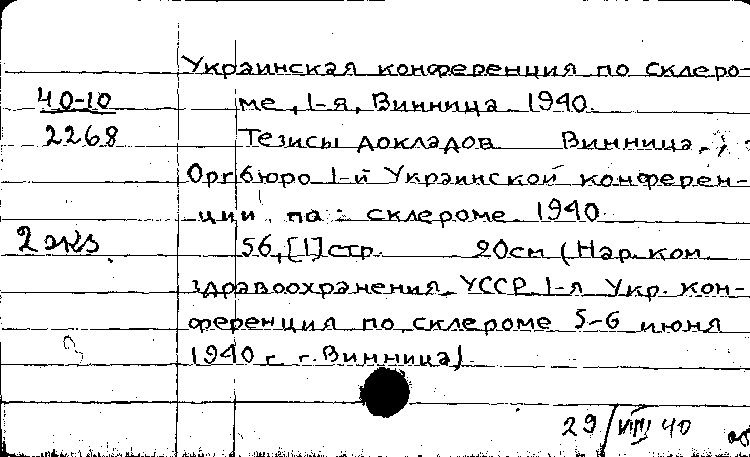 Украинская конференция по склеро-
40-10 ме, 1-я, Винница 1940.
2268 Тезисы докладов Винница,
Оргбюро 1-й Украинской конферен-
ции по склероме 1940
2 экз. 56, [1] стр. 20см (Нар. ком
здравоохранения УССР 1-я Укр. кон-
ференция по склероме 5-6 июня
1940 г г. Винница)
29/VIII 40